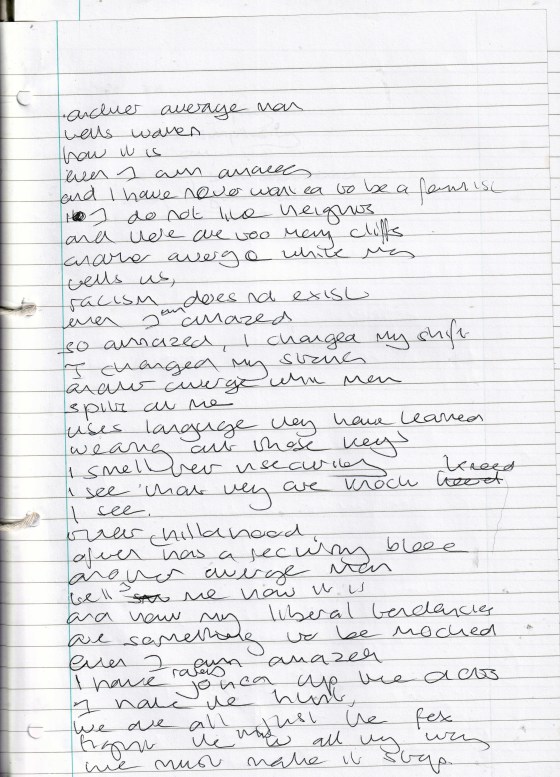 another average man
tells women
how it is
even I am amazed
and I have never wanted to be a feminist
I do not like heights
and there are too many cliffs
another average white man
tells us,
racism does not exist
even I am amazed
so amazed, I changed my shift
I changed my
another average white man
spits at me
uses language they have learned
wearing out those keys
I smell their insecurity
I see that they are knock kneed
I see.
their childhood
often has a recurring bleed
another average man
tells me how it is
and how my liberal tendencies
are something to be mocked
even I am amazed
I have rarely joined up the dots
I hate the hunt,
we are all just the fox
fight the to all my
we must make it stop.